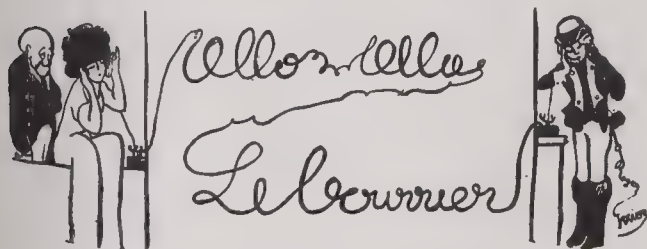 Allo Allo
Le Courrier